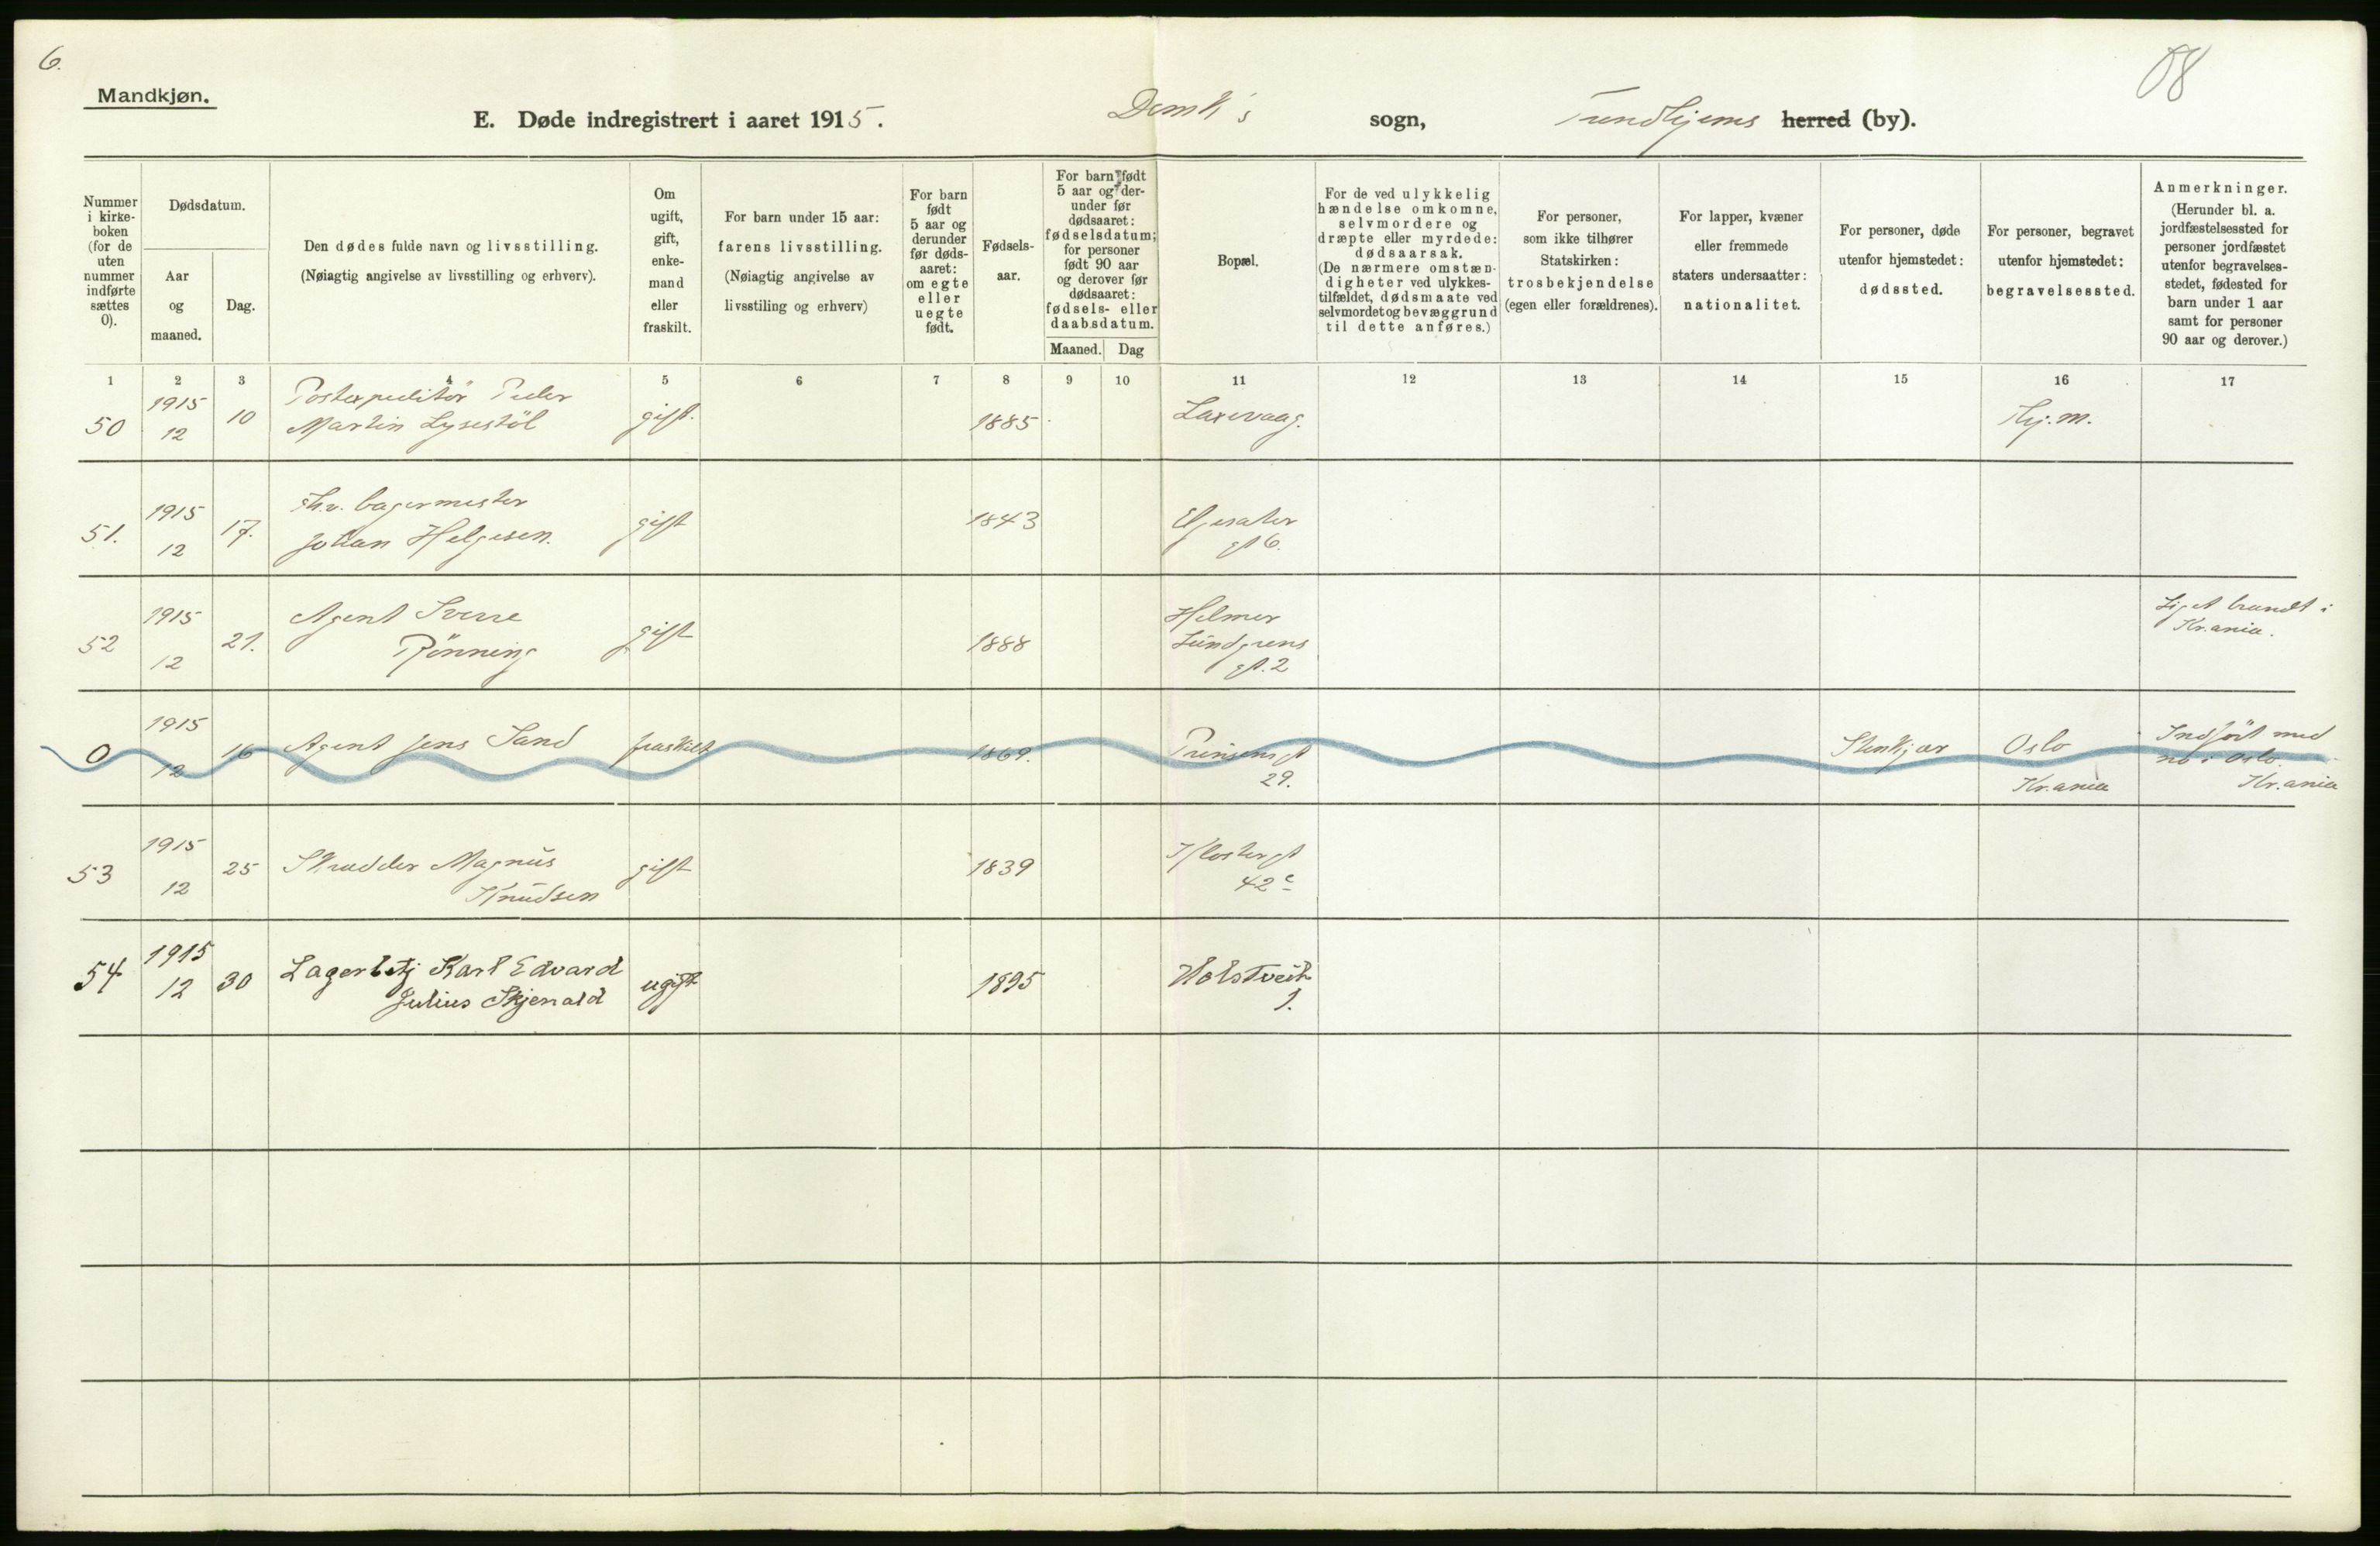 6.
Mandkjøn.
E. Døde indregistrert i aaret 1915.
Domk's sogn,
Trondhjems herred (by).
Nummer i kirke-boken (for de uten nummer indførte sættes 0).
Dødsdatum.
Aar og maaned.
Dag.
Den dødes fulde navn og livsstilling.
(Nøiagtig angivelse av livsstilling og erhverv).
Om ugift, gift, enke-mand eller fraskilt.
For barn under 15 aar: farens livsstilling.
(Nøiagtig angivelse av livsstiling og erhverv)
For barn født 5 aar og derunder før døds-aaret: om egte eller uegte født.
Fødsels-aar.
For barn født 5 aar og der-under før dødsaaret: fødselsdatum; for personer født 90 aar og derover før dødsaaret: fødsels- eller daabsdatum.
Maaned.
Dag
Bopæl.
For de ved ulykkelig hændelse omkomne, selvmordere og dræpte eller myrdede: dødsaarsak.
(De nærmere omstæn-digheter ved ulykkes-tilfældet, dødsmaate ved selvmordet og bevæggrund til dette anføres.)
For personer, som ikke tilhører Statskirken: trosbekjendelse (egen eller forældrenes).
For lapper, kvæner eller fremmede staters undersaatter: nationalitet.
For personer, døde utenfor hjemstedet: dødssted.
For personer, begravet utenfor hjemstedet: begravelsessted.
Anmerkninger.
(Herunder bl. a. jordfæstelsessted for personer jordfæstet utenfor begravelses-stedet, fødested for barn under 1 aar samt for personer 90 aar og derover.)
1 2 3 4 5 6 7 8 9 10 11 12 13 14 15 16 17
50 1915 12 10 Postexpeditör Peder Martin Lysestöl gift. 1885 Laxevaag. Hj.m.
51. 1915 12 17. Fhv. bagermester Johan Helgesen. gift 1843 Elgesæter gt 6.
52 1915 12 21. Agent Sverre Rönning gift 1888 Helmer Lundgrens gt. 2 Liget brændt i Kr.ania.
0 1915 12 16 Agent Jens Sand fraskilt 1869. Prinsensgt 29. Stenkjær Oslo Kr.ania Indfört med no i Oslo. Kr.ania
53 1915 12 25 Skrædder Magnus Knudsen gift 1839 Klostergt 42c
54 1915 12 30 Lagerbetj Karl Edvard Julius Skjenald ugift 1895 Holstveita 1.